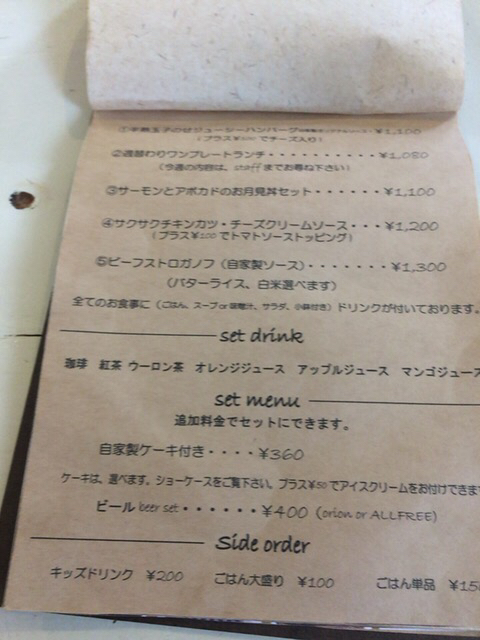 ①半熟玉子のせジューシーハンバーグ ¥1,100
(プラス¥100でチーズ入り)
②週替わりワンプレートランチ・・・・・・・・・・・¥1,080
(今週の内容は、staffまでお尋ね下さい)
③サーモンとアボカドのお月見丼セット・・・・¥1,100
④サクサクチキンカツ・チーズクリームソース・・・¥1,200
(プラス¥100でトマトソーストッピング)
⑤ビーフストロガノフ(自家製ソース)・・・・・・・¥1,300
(バターライス、白米選べます)
全てのお食事に(ごはん、スープor味噌汁、サラダ、小鉢付き)ドリンクが付いております。
set drink
珈琲 紅茶 ウーロン茶 オレンジジュース アップルジュース マンゴジュース
set menu
追加料金でセットにできます。
自家製ケーキ付き・・・・¥360
ケーキは、選べます。ショーケースをご覧下さい。プラス¥50でアイスクリームをお付けできます
ビール beer set・・・・・・¥400 (orion or ALLFREE)
Side order
キッズドリンク ¥200 ごはん大盛り ¥100 ごはん単品 ¥15